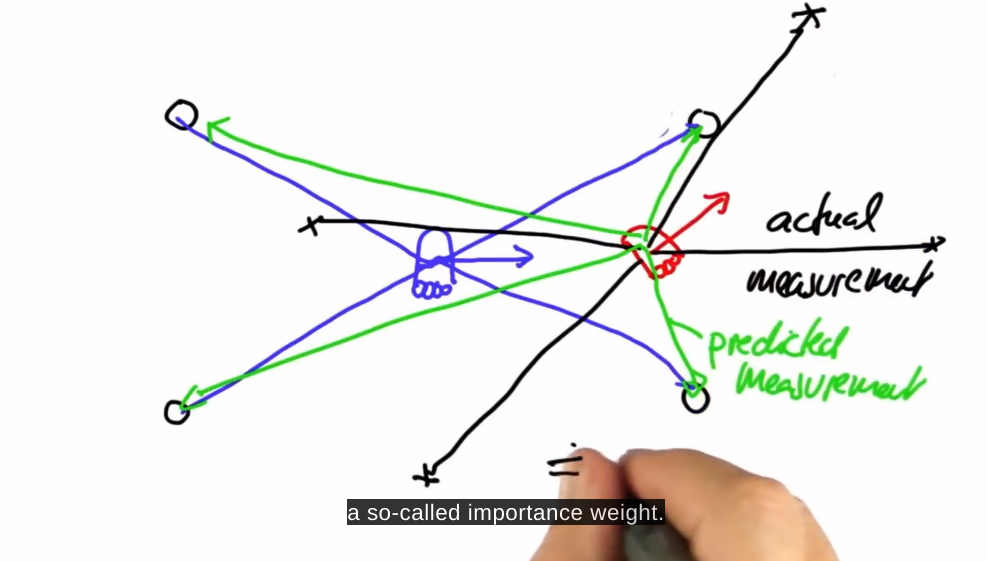 actual
measurement
predicted
measurement
=
a so-called importance weight.